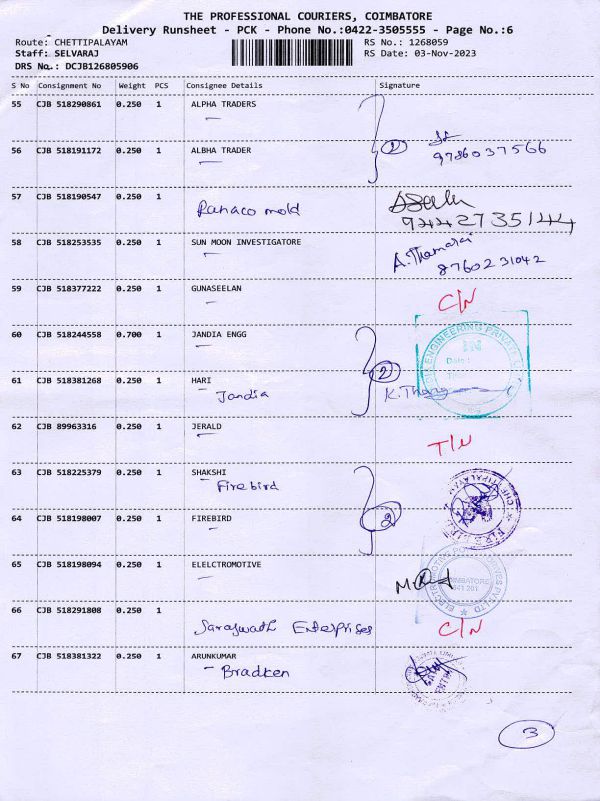 THE PROFESSIONAL COURIERS, COIMBATORE
Delivery Runsheet - PCK - Phone No.:0422-3505555 - Page No.:6
Route: CHETTIPALAYAM RS No.: 1268059
Staff: SELVARAJ RS Date: 03-Nov-2023
DRS No.: DCJB126805906
S No Consignment No Weight PCS Consignee Details Signature
55 CJB 518290861 0.250 1 ALPHA TRADERS
2 9786037566
56 CJB 518191172 0.250 1 ALBHA TRADER
57 CJB 518190547 0.250 1 Ranaco mold
9442735144
58 CJB 518253535 0.250 1 SUN MOON INVESTIGATORE A. Thamarai
8760231042
59 CJB 518377222 0.250 1 GUNASEELAN C/N
60 CJB 518244558 0.700 1 JANDIA ENGG
ENGINEERING PRIVATE
IN
Date :
2 K. Thang
61 CJB 518381268 0.250 1 HARI
Jandia
62 CJB 89963316 0.250 1 JERALD T/N
63 CJB 518225379 0.250 1 SHAKSHI
Firebird
CHETTIPALAYAM
2
64 CJB 518198007 0.250 1 FIREBIRD
65 CJB 518198094 0.250 1 ELELCTROMOTIVE
COIMBATORE
641 201
66 CJB 518291808 0.250 1 Saraswathi Enterprises C/N
67 CJB 518381322 0.250 1 ARUNKUMAR
Bradken
3